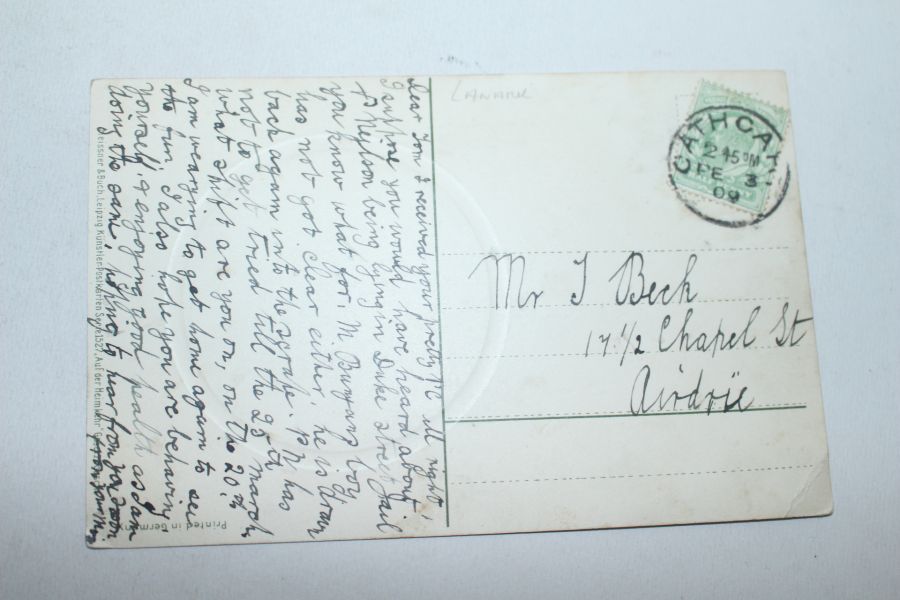 LANARK
CATHCART
2 45 PM
FE 3
09
Mr J Beck
17 1/2 Chapel St
Airdrie
Dear Tom I received your pretty P.C. all right
I suppose you would have heard about
P Neilson being lying in Duke street Jail
you know what for. M. Burying boy
has not got clear either, he is drawn
back again into the scrape. P.N. has
not to get tried till the 25 march,
what shift are you on, on the 20th
I am wearying to get home again to see
the fun, I also hope you are behaving
yourself, & enjoying good health as I am
doing the same, hoping to hear from you soon
Meissner & Buch, Leipzig. Künstler-Postkarten Serie 1527, Auf der Heimkehr
Printed in Germany